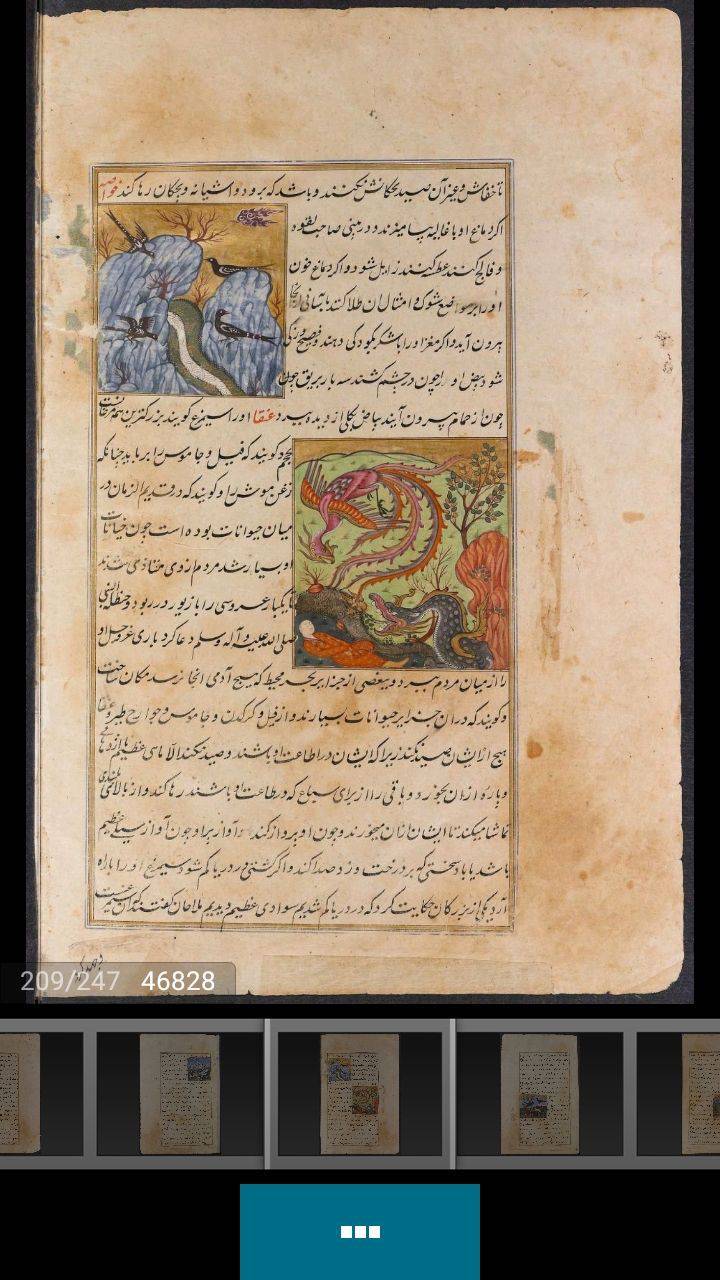 تا خفاش وغیر آن صید بچکانش نکنند وباشد که برود و آشیانه وبچکان رها کند خواصه
اکر دماغ او با غالیه بیامیزند و در بینی صاحب لقوه
و فالج کنند عطسه کنند زایل شود و اکر دماغ خون
او را بر موضع شوک و امثال ان طلا کنند باسانی
بیرون آید و اکر مغز او را با شکر بکودکی دهند فصیح
شود بیض او را چون در چشم کشند سه بار بریق
چون از حمام بیرون آیند بیاض بکلی از دیده ببرد عنقا او را سیمرغ کویند بزرکترین همه مرغانست
بحجم و کویند که فیل و جاموس را برباید چنانکه
زغن موش را و کویند که در قدیم الزمان در
میان حیوانات بوده است چون
او بسیار شد مردم از وی متاذی شدند
تا یکبار عروسی را با زیور در ربود و حنظله النبی
صلی الله علیه و آله وسلم دعا کرد باری عز و جل او
را از میان مردم ببرد و ببعضی از جزایر بحر محیط که هیچ آدمی انجا نرسد مکان ساخت
و کویند که در ان جزایر حیوانات بسیارند از فیل و کرکدن و جاموس و جوارح طیر و عنقا
هیچ از ایشان صید نکند زیرا که ایشان در اطاعت او باشند و صید نکند الا ماهی عظیم یا اژدهائی
و پاره از ان بخورد و باقی را از برای سباع که در طاعت او باشند رها کند و از بالای بلندی
تماشا میکند تا ایشان از ان میخورند و چون او پرواز کند آواز پر او چون آواز سیلی عظیم
باشد یا باد سختی که بر درخت وزد و صدا کند و اکر کشتی در دریا کم شود سیمرغ او را با راه
آرد یکی از بزرکان حکایت کرد که در دریا کم شدیم سوادی عظیم دیدیم ملاحان کفتند که این سیمرغست
209/247 46828